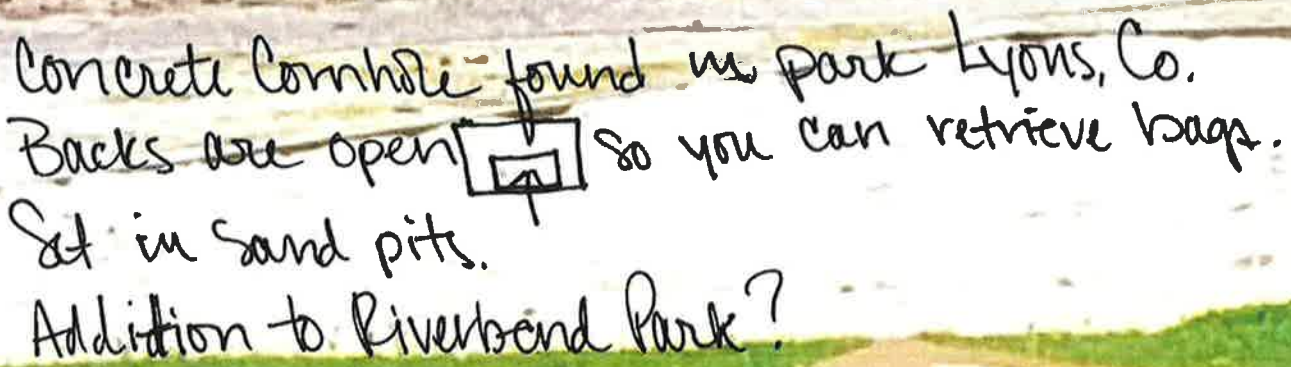 Concrete Cornhole found in park Lyons, Co.
Backs are open so you can retrieve bags.
Set in sand pits.
Addition to Riverbend Park?